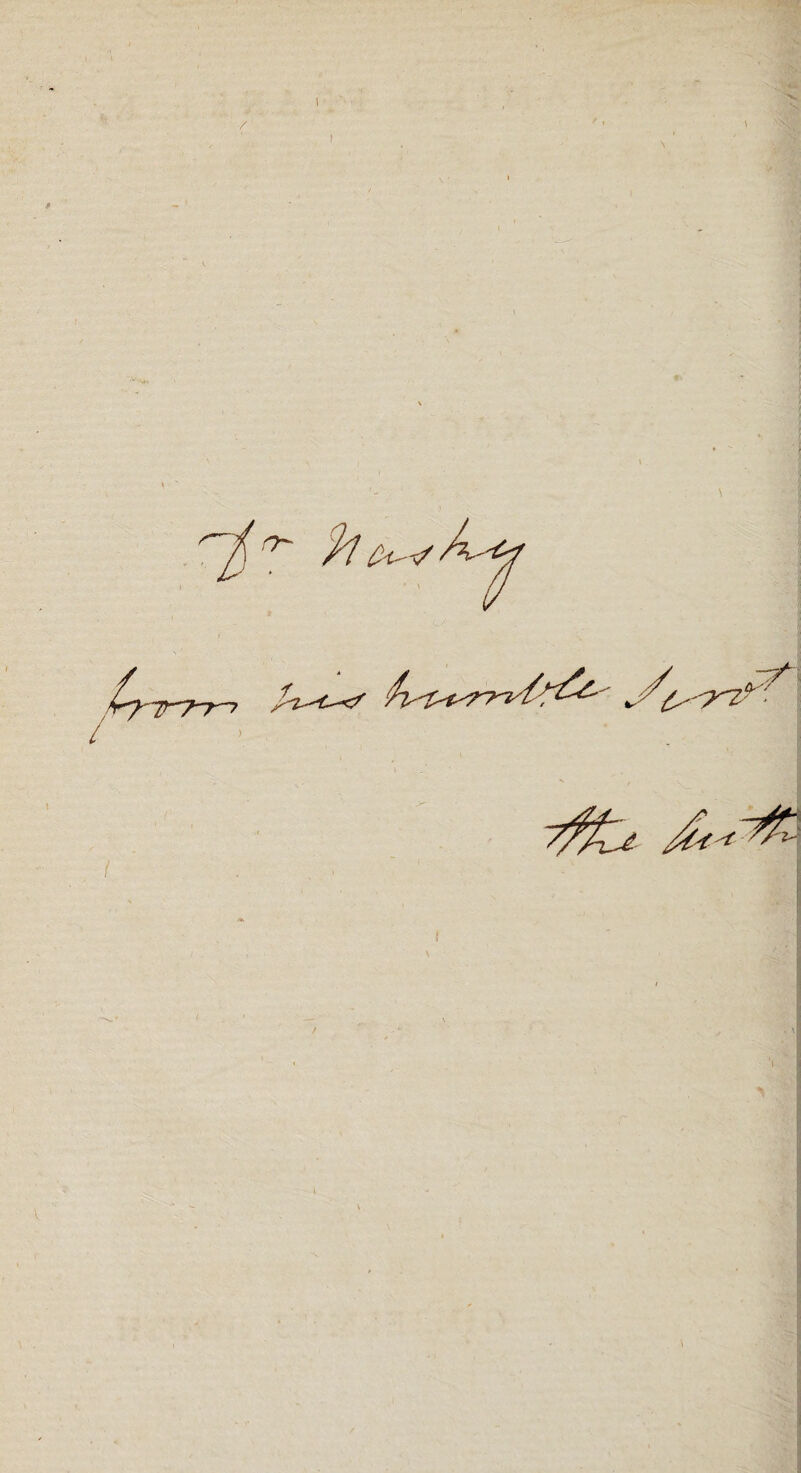 Dr Nashy
from his humble Servt
The Auth